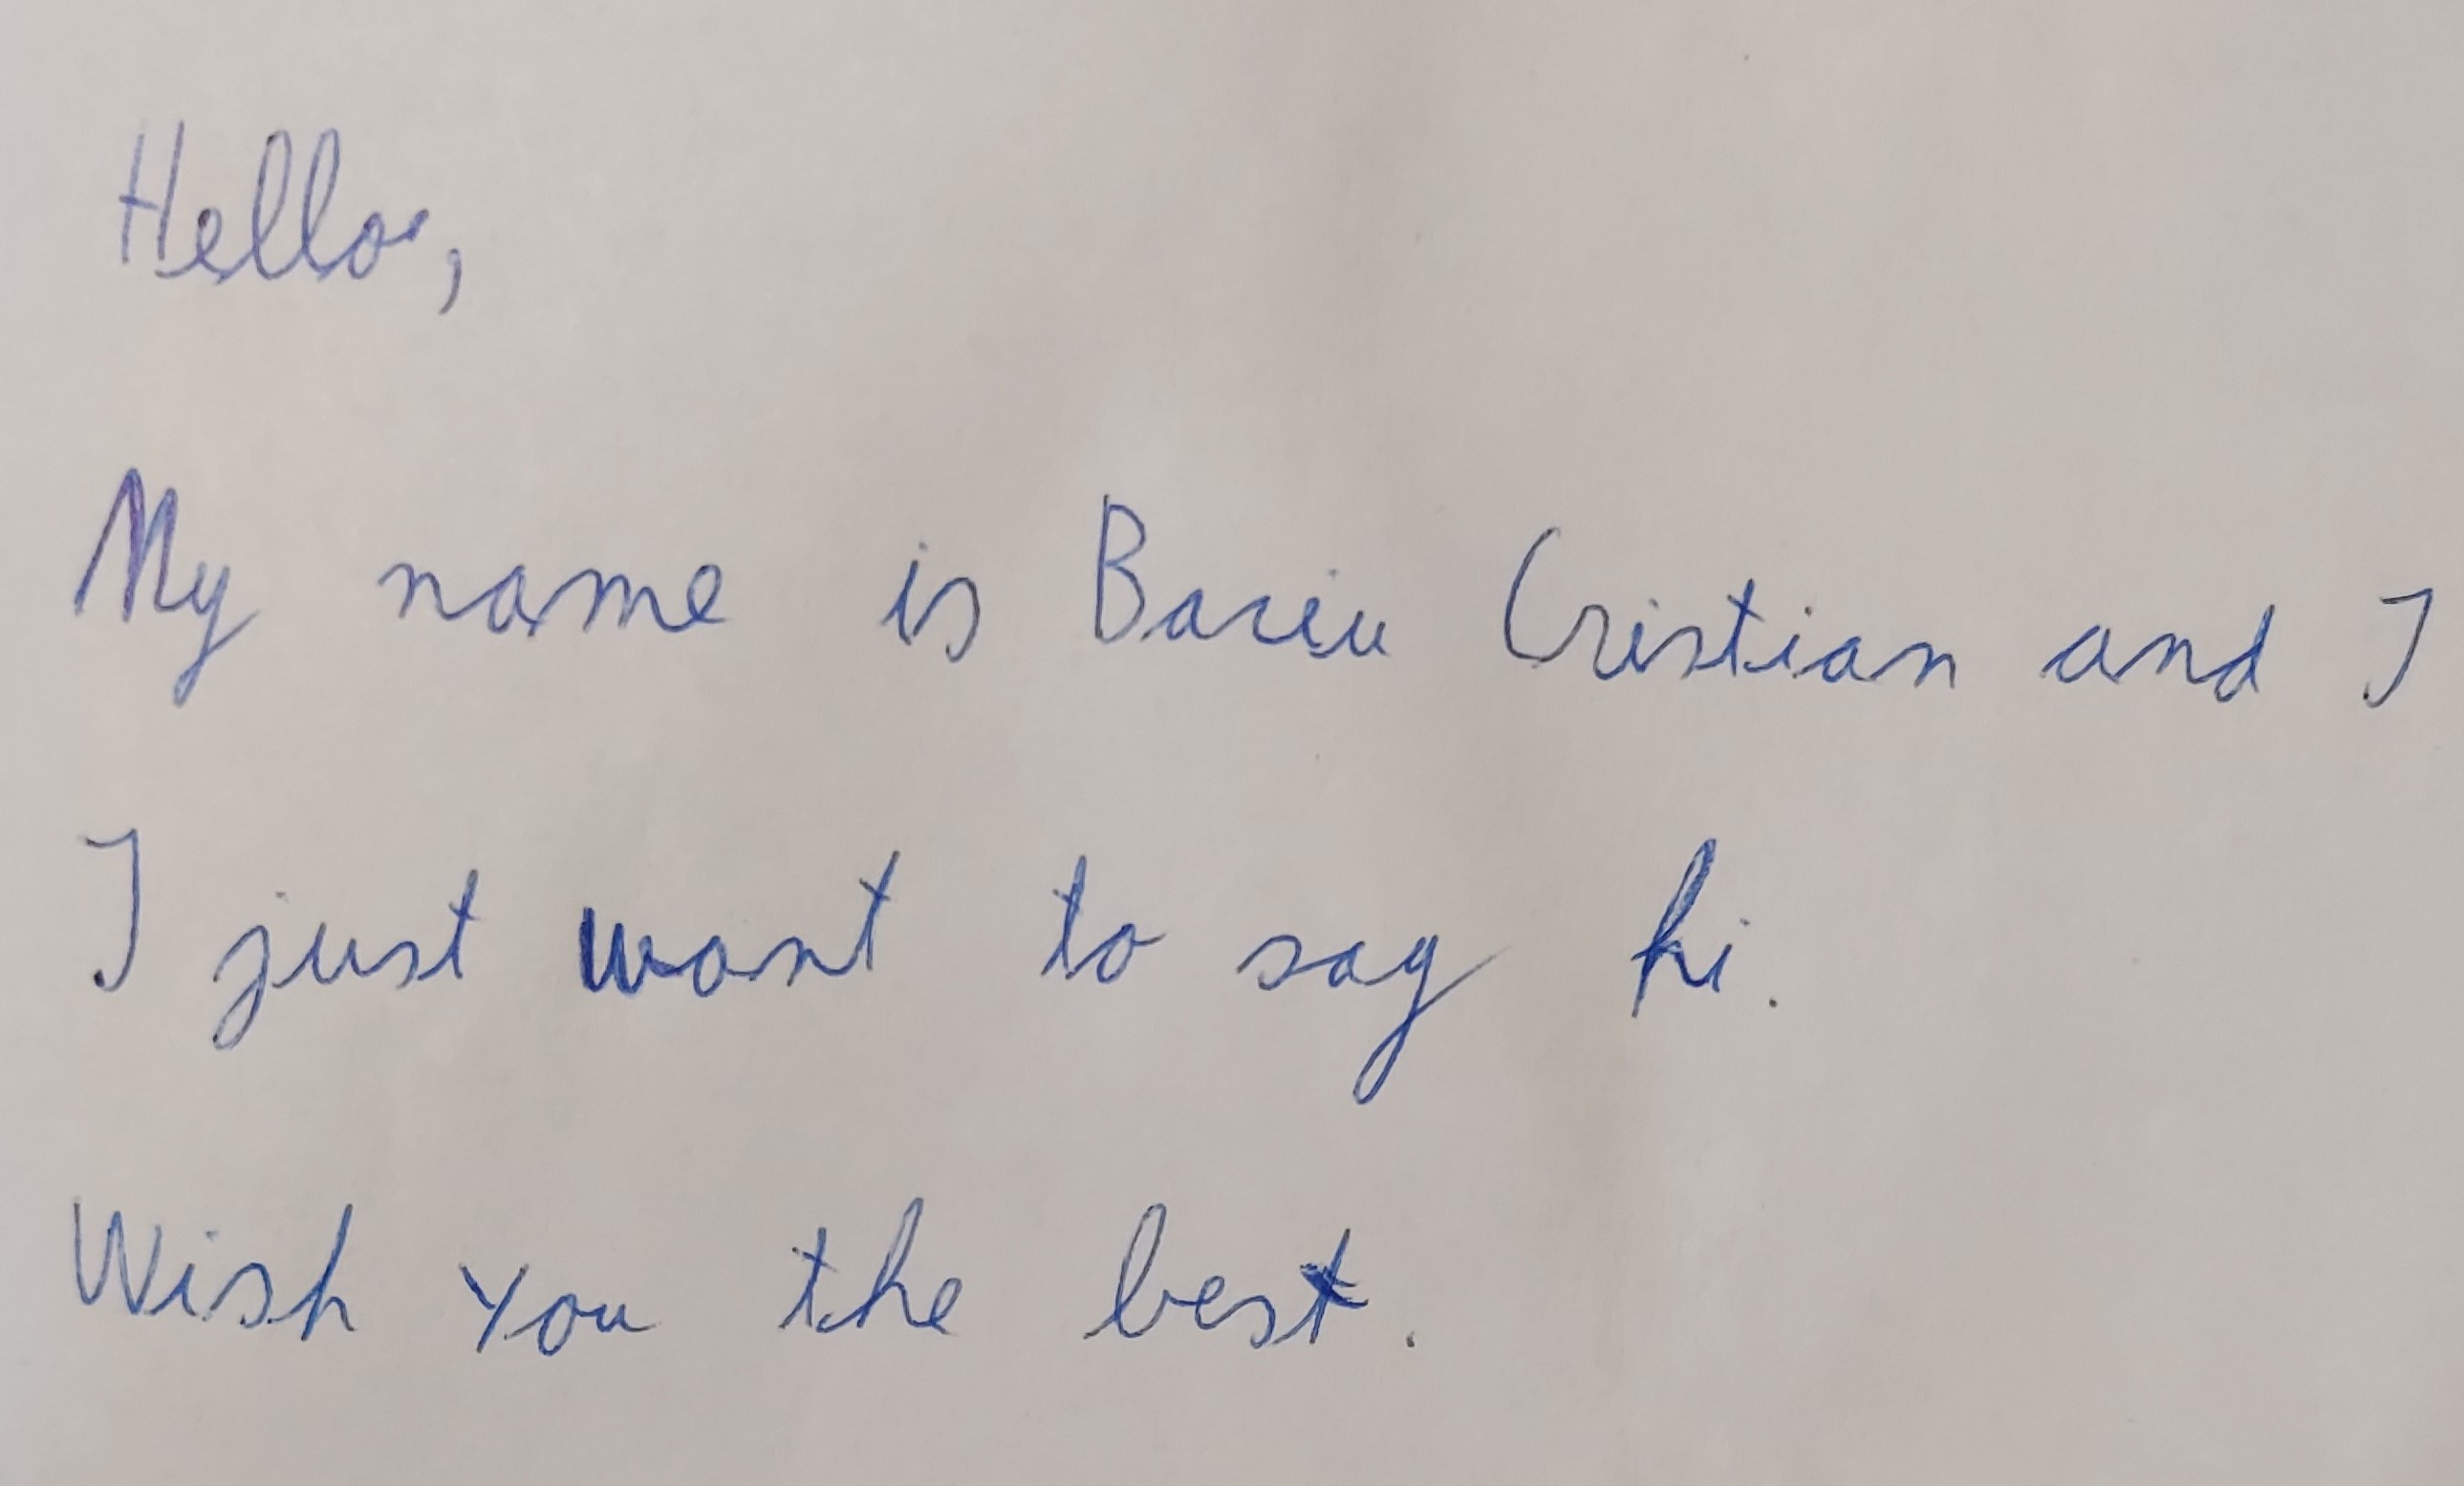 Hello,
My name is Baciu Cristian and I
I just want to say hi.
Wish you the best.